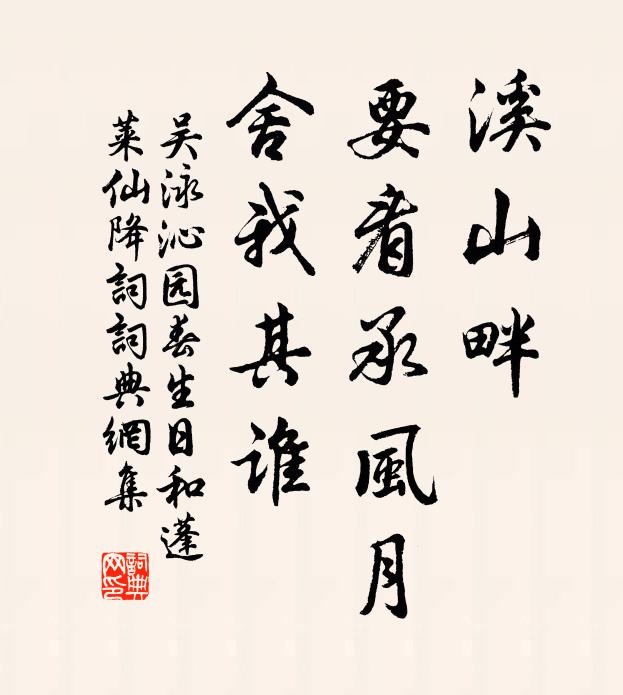 溪山畔
要看承風月
舍我其谁
吴泳沁园春生日和蓬
莱仙降詞詞典網集
詞典网印